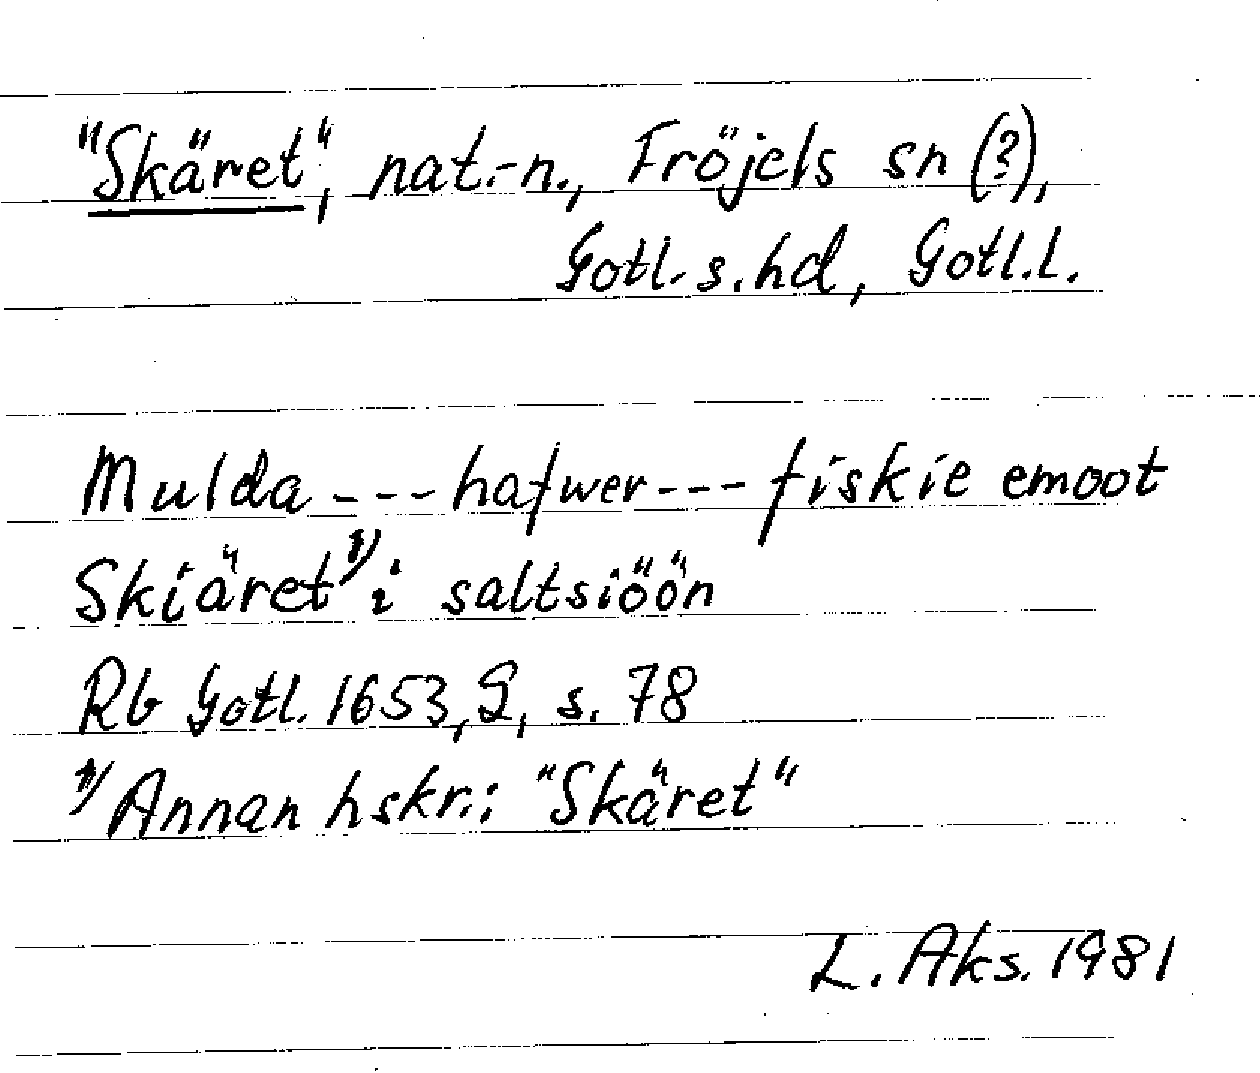 "Skäret", nat.-n., Fröjels sn (?),
Gotl. s. hd, Gotl. l.
Mulda --- hafwer --- fiskie emoot
Skiäret 1) i saltsiöön
Rb Gotl. 1653, 2, s. 78
1) Annan hskr.: "Skäret"
L. Aks. 1981